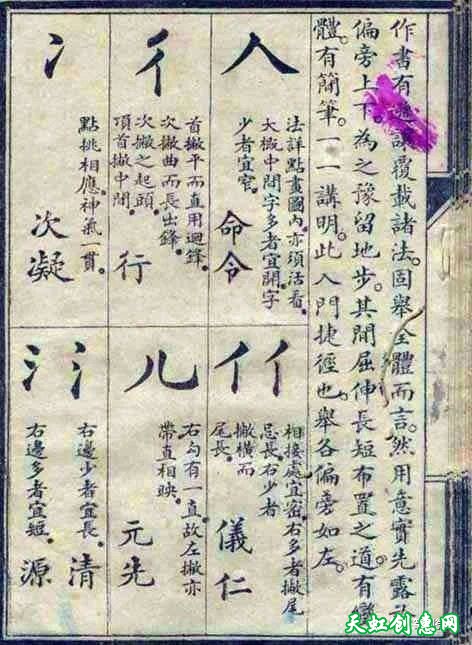 作書有避讓覆載諸法。固舉全體而言。然用意實先露
偏旁上下。為之豫留地步。其間屈伸長短布置之道。有變
體。有簡筆。一一講明。此入門捷徑也。舉各偏旁如左。
人
法詳點畫圖內。亦須活看。
大概中間字多者宜開。字
少者宜窄。
命令
彳
首撇平而直用迴鋒。
次撇曲而長出鋒。
次撇之起頭。
項首撇中間。
行
冫
點挑相應。神氣一貫。
次凝
亻亻
相接處宜密。右多者撇尾
忌長。右少者
撇橫而
尾長。
儀仁
儿
右勾有一直。故左撇亦
帶直相映。
元
氵氵
右邊少者宜長。清
右邊多者宜短。源
天虹创意网